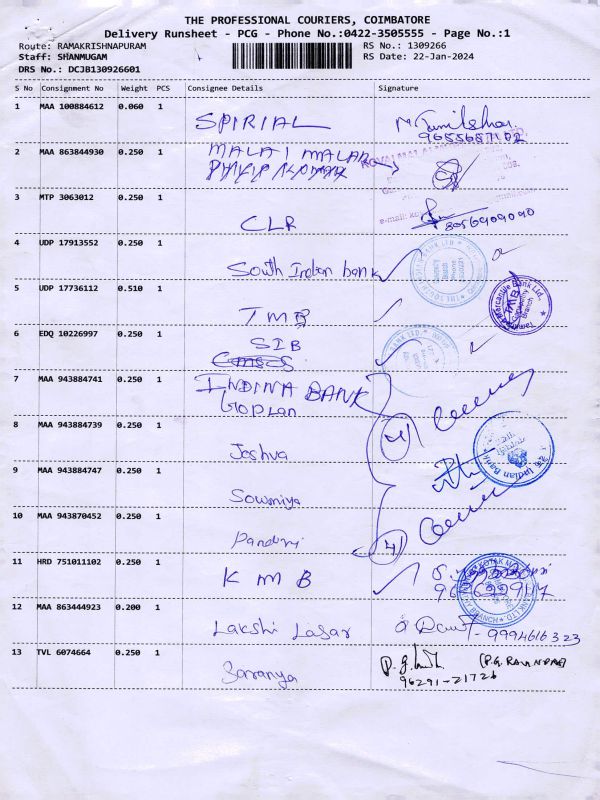 THE PROFESSIONAL COURIERS, COIMBATORE
Delivery Runsheet - PCG - Phone No.:0422-3505555 - Page No.:1
Route: RAMAKRISHNAPURAM RS No.: 1309266
Staff: SHANMUGAM RS Date: 22-Jan-2024
DRS No.: DCJB130926601
S No Consignment No Weight PCS Consignee Details Signature
1 MAA 100884612 0.060 1
SPIRIAL
9655687102
2 MAA 863844930 0.250 1 MALAI MALAR
3 MTP 3063012 0.250 1
CLR 8056909090
e-mail:
4 UDP 17913552 0.250 1
South Indian bank
5 UDP 17736112 0.510 1
TMB
Mercantile Bank Ltd.
TMB
Branch
6 EDQ 10226997 0.250 1 SIB
7 MAA 943884741 0.250 1 INDINA BANK
Goplan
4
8 MAA 943884739 0.250 1
Joshua
Indian Bank
9 MAA 943884747 0.250 1
Sowmiya
10 MAA 943870452 0.250 1
4
11 HRD 751011102 0.250 1
KMB
KOTAK
12 MAA 863444923 0.200 1
Lakshi Lasar 9994616323
13 TVL 6074664 0.250 1
Saranya
96291-21726